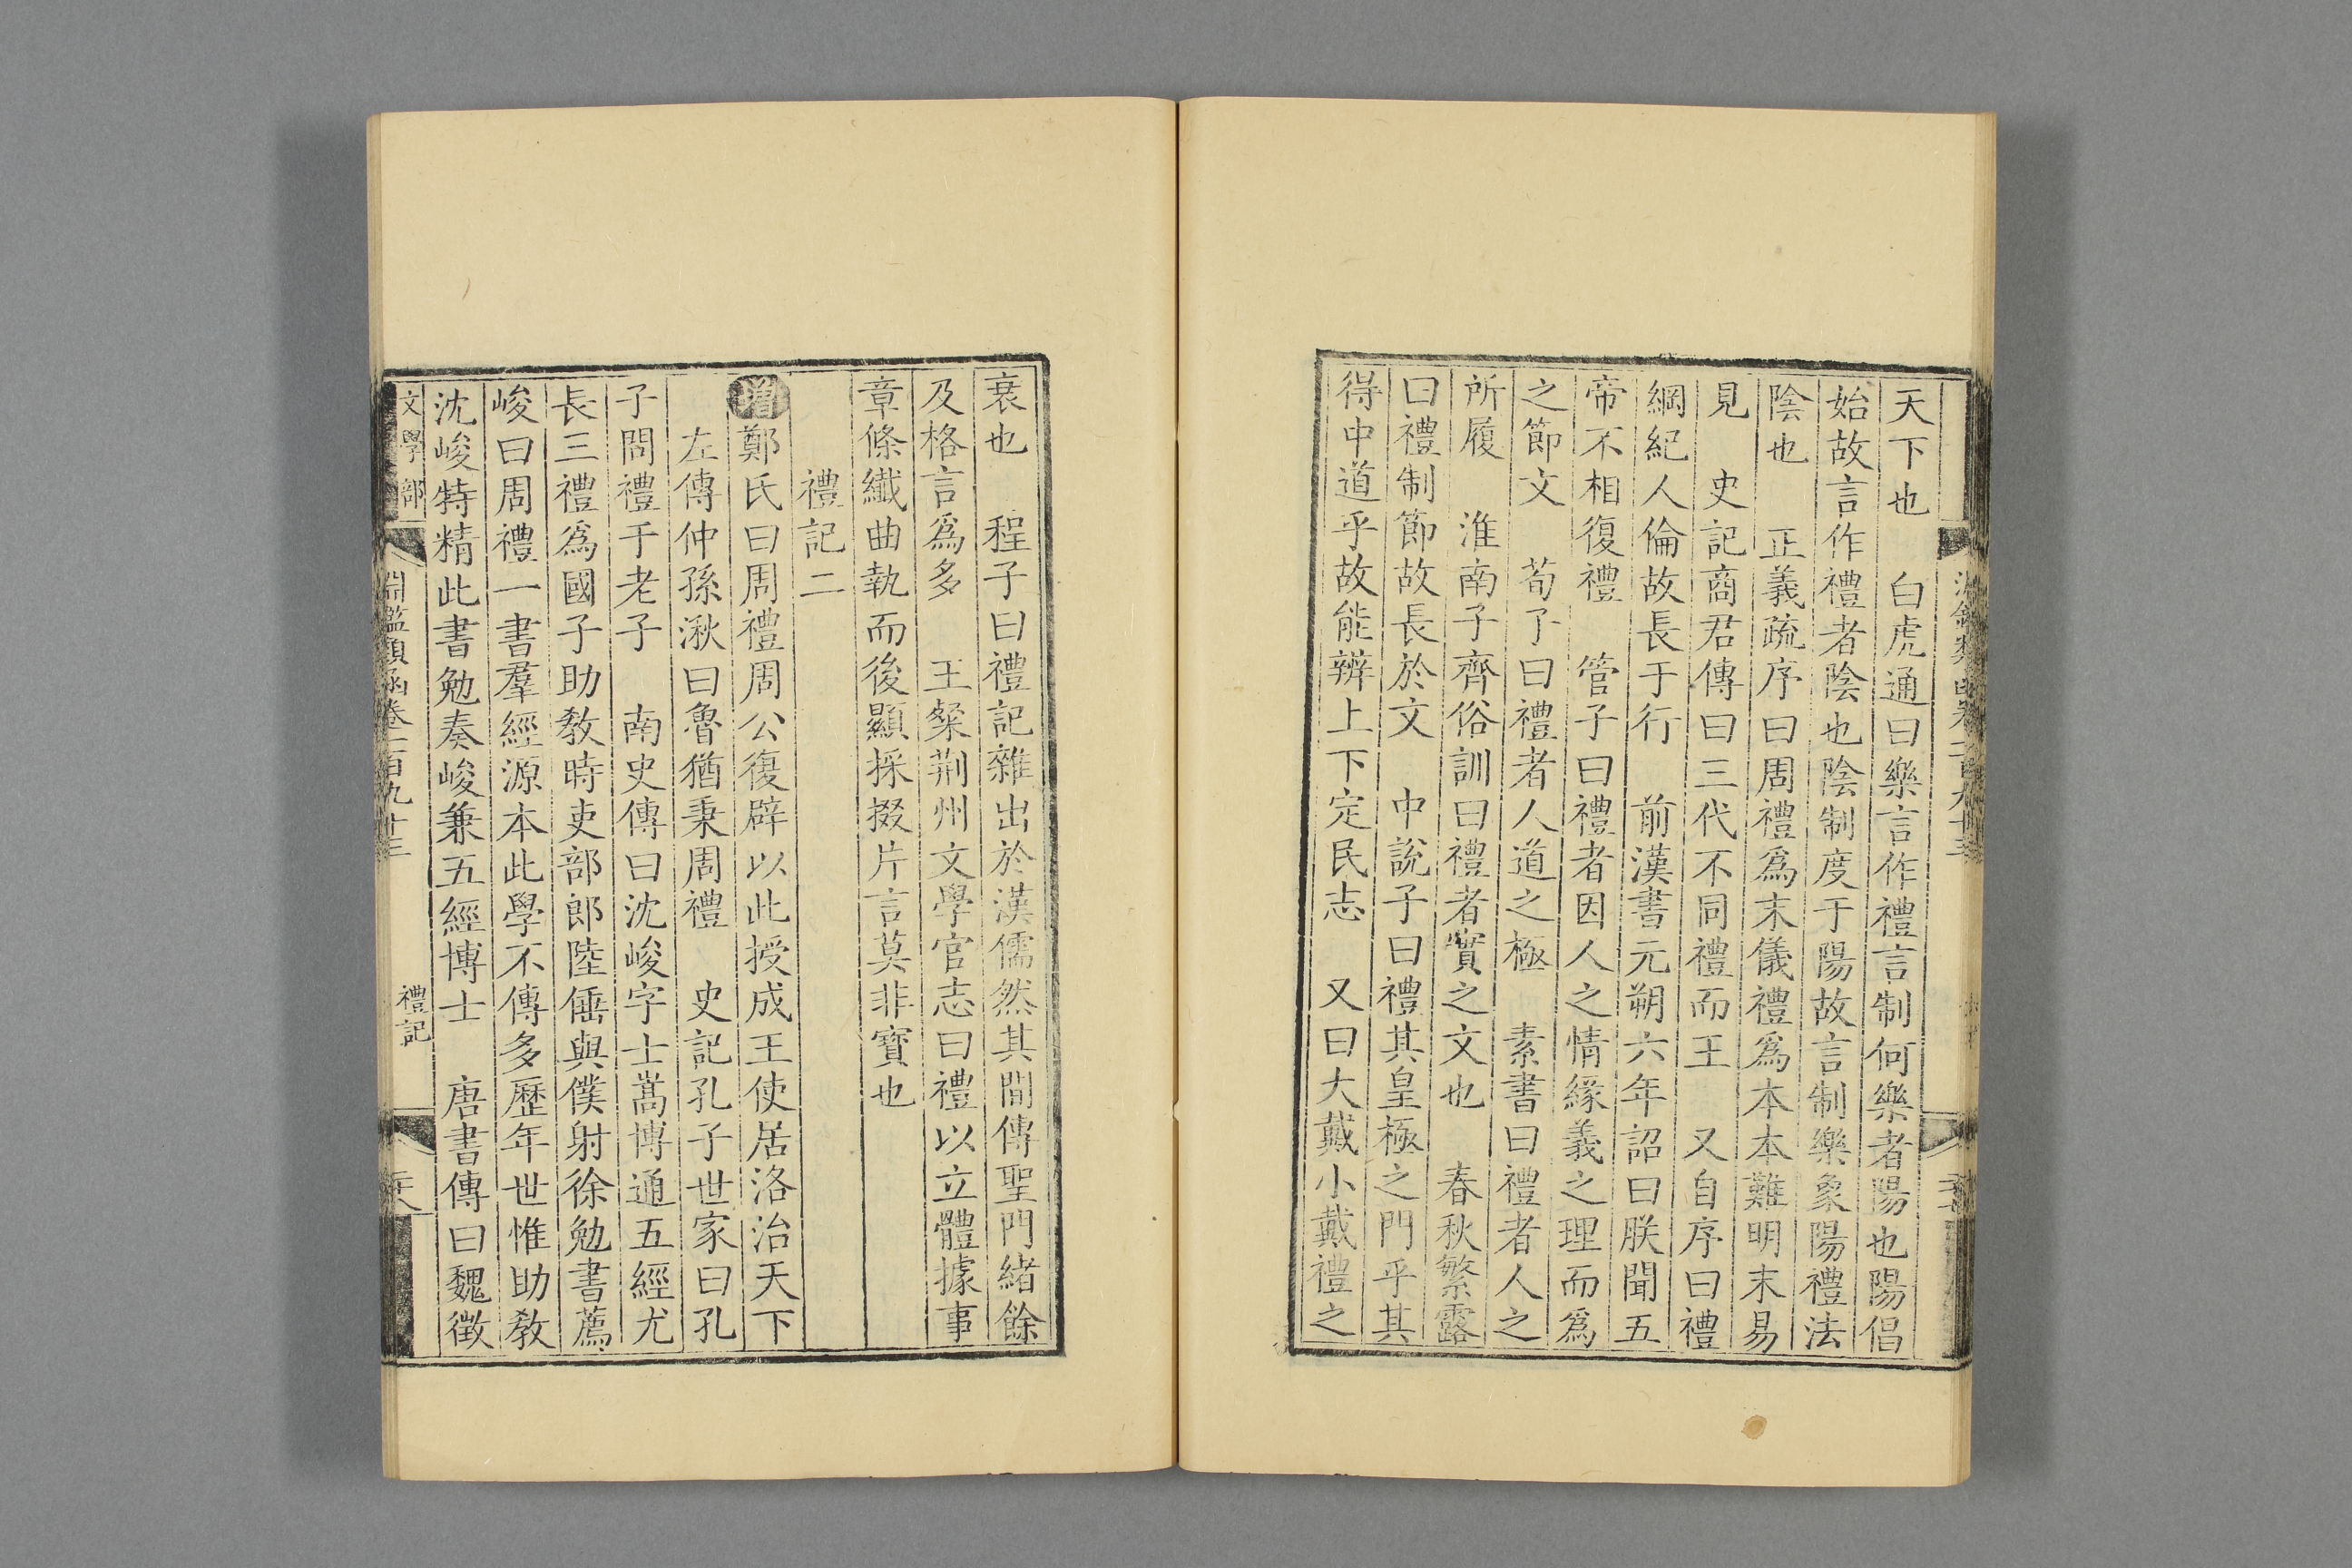 天下也　白虎通曰樂言作禮言制何樂者陽也陽倡
始故言作禮者陰也陰制度于陽故言制樂象陽禮法
陰也　正義疏序曰周禮爲末儀禮爲本本難明末易
見　史記商君傳曰三代不同禮而王　又自序曰禮
綱紀人倫故長于行　前漢書元朔六年詔曰朕聞五
帝不相復禮　管子曰禮者因人之情緣義之理而爲
之節文　荀子曰禮者人道之極　素書曰禮者人之
所履　淮南子齊俗訓曰禮者實之文也　春秋繁露
曰禮制節故長於文　中說子曰禮其皇極之門乎其
得中道乎故能辨上下定民志　又曰大戴小戴禮之
衰也　程子曰禮記雜出於漢儒然其間傳聖門緒餘
及格言爲多　王粲荆州文學官志曰禮以立體據事
章條纖曲執而後顯採掇片言莫非寶也
禮記二
增鄭氏曰周禮周公復辟以此授成王使居洛治天下
左傳仲孫湫曰魯猶秉周禮　史記孔子世家曰孔
子問禮于老子　南史傳曰沈峻字士嵩博通五經尤
長三禮爲國子助敎時吏部郎陸倕與僕射徐勉書薦
峻曰周禮一書羣經源本此學不傳多歷年世惟助敎
沈峻特精此書勉奏峻兼五經博士　唐書傳曰魏徵
文學部　淵鑑類函卷一百九十三　禮記